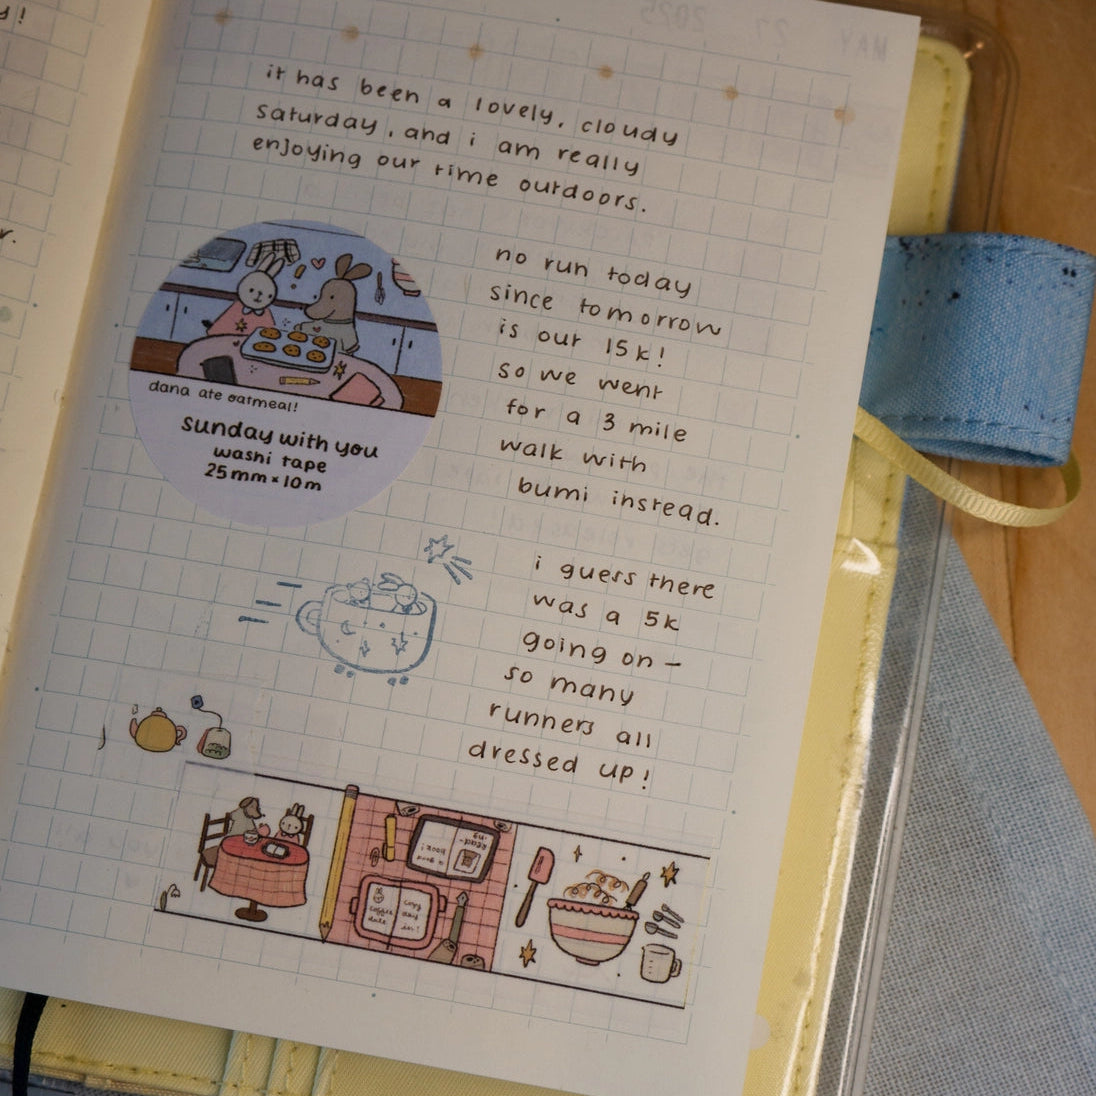 it has been a lovely, cloudy
saturday, and i am really
enjoying our time outdoors.
no run today
since tomorrow
is our 15k!
so we went
for a 3 mile
walk with
bumi instead.
dana ate oatmeal!
sunday with you
washi tape
25mm × 10m
i guess there
was a 5k
going on –
so many
runners all
dressed up!
MAY 27 2025
coffee
date
cozy
day
in!
a good
book!
Read-
ing